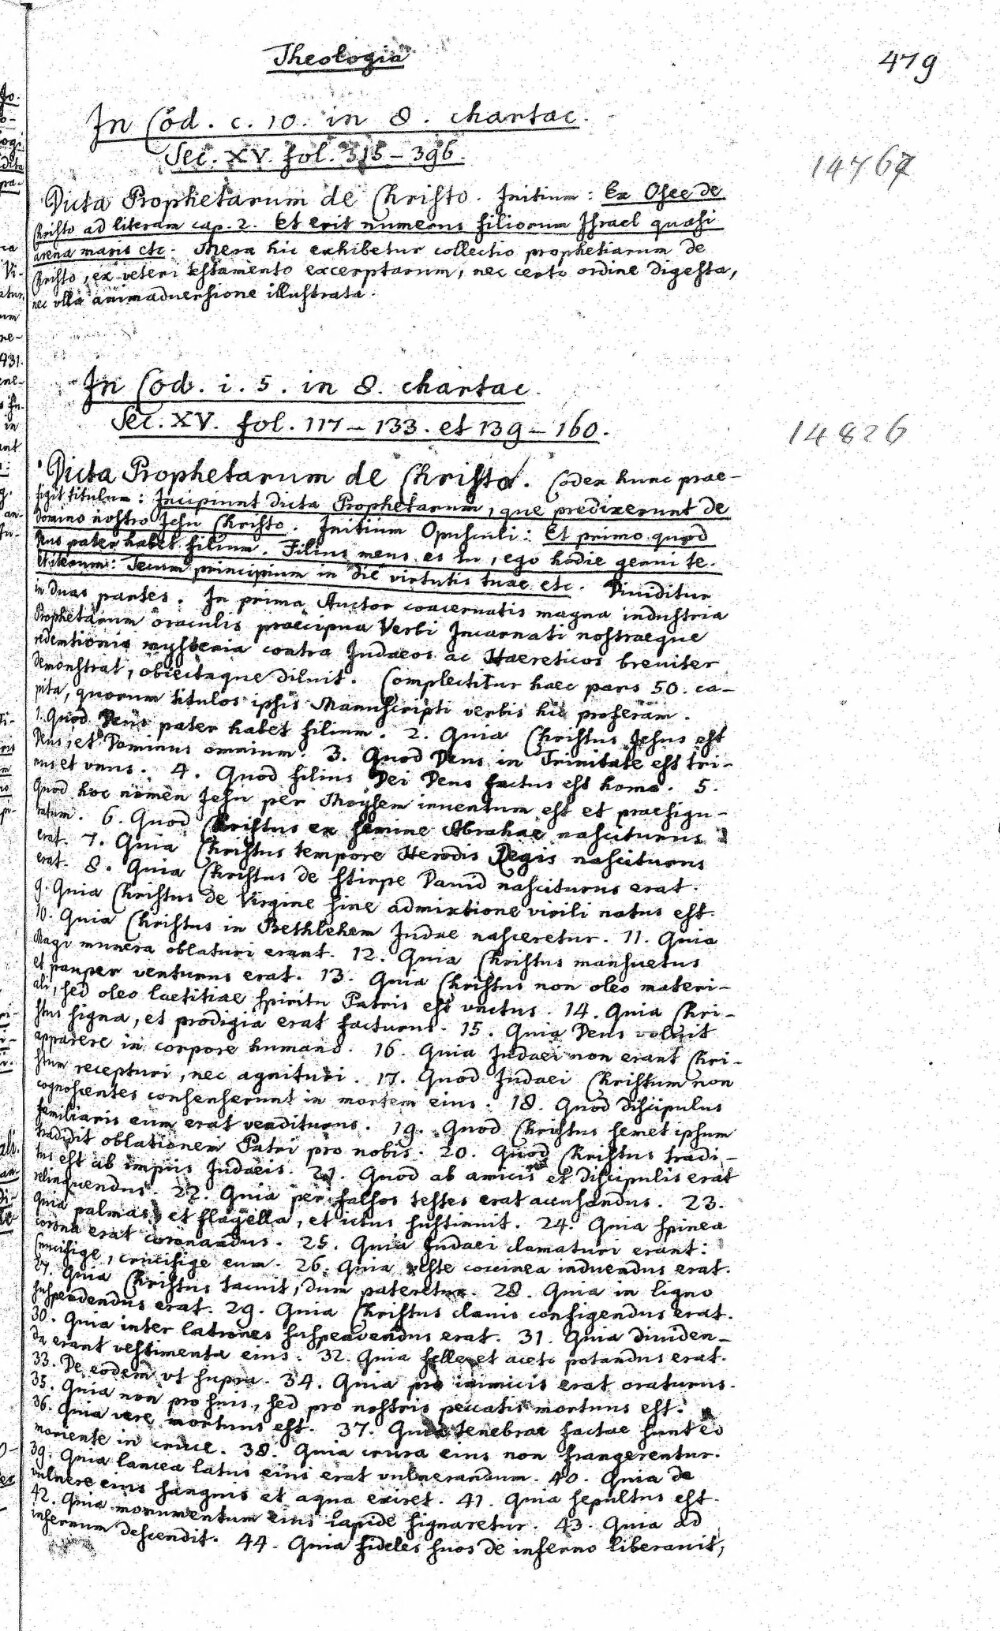 Theologia
479
In Cod. c. 10. in 8. chartac.
Sec. XV. fol. 315–396.
14767
Dicta Prophetarum de Christo. Initium: Ex Osee de
Christo ad literam cap. 2. Et erit numerus filiorum Israel quasi
arena maris etc. Mera hic exhibetur collectio prophetiarum de
Christo, ex veteri testamento excerptarum, nec certo ordine digesta,
nec ulla animadversione illustrata.
In Cod. i. 5. in 8. chartac.
Sec. XV. fol. 117–133. et 139–160.
14826
Dicta Prophetarum de Christo. Codex hunc prae-
figit titulum: Incipiunt dicta Prophetarum, que predixerunt de
Domino nostro Jesu Christo. Initium Opusculi: Et primo quod
Deus pater habet filium. Filius meus es tu, ego hodie genui te.
Et iterum: Tecum principium in die virtutis tuae etc. Diuiditur
in duas partes. In prima Auctor coacernatis magna industria
Prophetarum oraculis praecipua Verbi Incarnati nostraeque
redemtionis mysteria contra Judaeos ac Haereticos breviter
demonstrat, obiectaque diluit. Complectitur haec pars 50. ca-
pita, quorum titulos ipsis Manuscripti verbis hic proferam.
1. Quod Deus pater habet filium. 2. Quia Christus Jesus est
Deus, et Dominus omnium. 3. Quod Deus in Trinitate est tri-
nus et vnus. 4. Quod filius Dei Deus factus est homo. 5.
Quod hoc nomen Jesu per Moysem inventum est et praesigna-
tum. 6. Quod Christus ex semine Abrahae nasciturus
erat. 7. Quia Christus tempore Herodis Regis nasciturus
erat. 8. Quia Christus de stirpe Dauid nasciturus erat.
9. Quia Christus de Virgine sine admixtione virili natus est.
10. Quia Christus in Bethlehem Judae nasceretur. 11. Quia
Magi munera oblaturi erant. 12. Quia Christus mansuetus
et pauper venturus erat. 13. Quia Christus non oleo materi-
ali, sed oleo laetitiae spiritu Patris est vnctus. 14. Quia Chri-
stus signa, et prodigia erat facturus. 15. Quia Deus voluit
apparere in corpore humano. 16. Quia Judaei non erant Chri-
stum recepturi, nec agnituri. 17. Quod Judaei Christum non
cognoscentes consenserunt in mortem eius. 18. Quod discipulus
familiaris eum erat venditurus. 19. Quod Christus semet ipsum
tradidit oblationem Patri pro nobis. 20. Quod Christus tradi-
tus est ab impiis Judaeis. 21. Quod ab amicis et discipulis erat
relinquendus. 22. Quia per falsos testes erat accusandus. 23.
Quia palmas et flagella, et ictus sustinuit. 24. Quia spinea
corona erat coronandus. 25. Quia Judaei clamaturi erant:
Crucifige, crucifige eum. 26. Quia veste coccinea induendus erat.
27. Quia Christus tacuit, dum pateretur. 28. Quia in ligno
suspendendus erat. 29. Quia Christus clauis configendus erat.
30. Quia inter latrones suspendendus erat. 31. Quia diuiden-
da erant vestimenta eius. 32. Quia felle et aceto potandus erat.
33. De eodem vt supra. 34. Quia pro inimicis erat oraturus.
35. Quia non pro suis, sed pro nostris peccatis mortuus est.
36. Quia vere mortuus est. 37. Quia tenebrae factae sunt eo
moriente in cruce. 38. Quia crura eius non frangerentur.
39. Quia lancea latus eius erat vulnerandum. 40. Quia de
vulnere eius sanguis et aqua exiret. 41. Quia sepultus est.
42. Quia monumentum eius lapide signaretur. 43. Quia ad
infernum descendit. 44. Quia fideles suos de inferno liberauit,